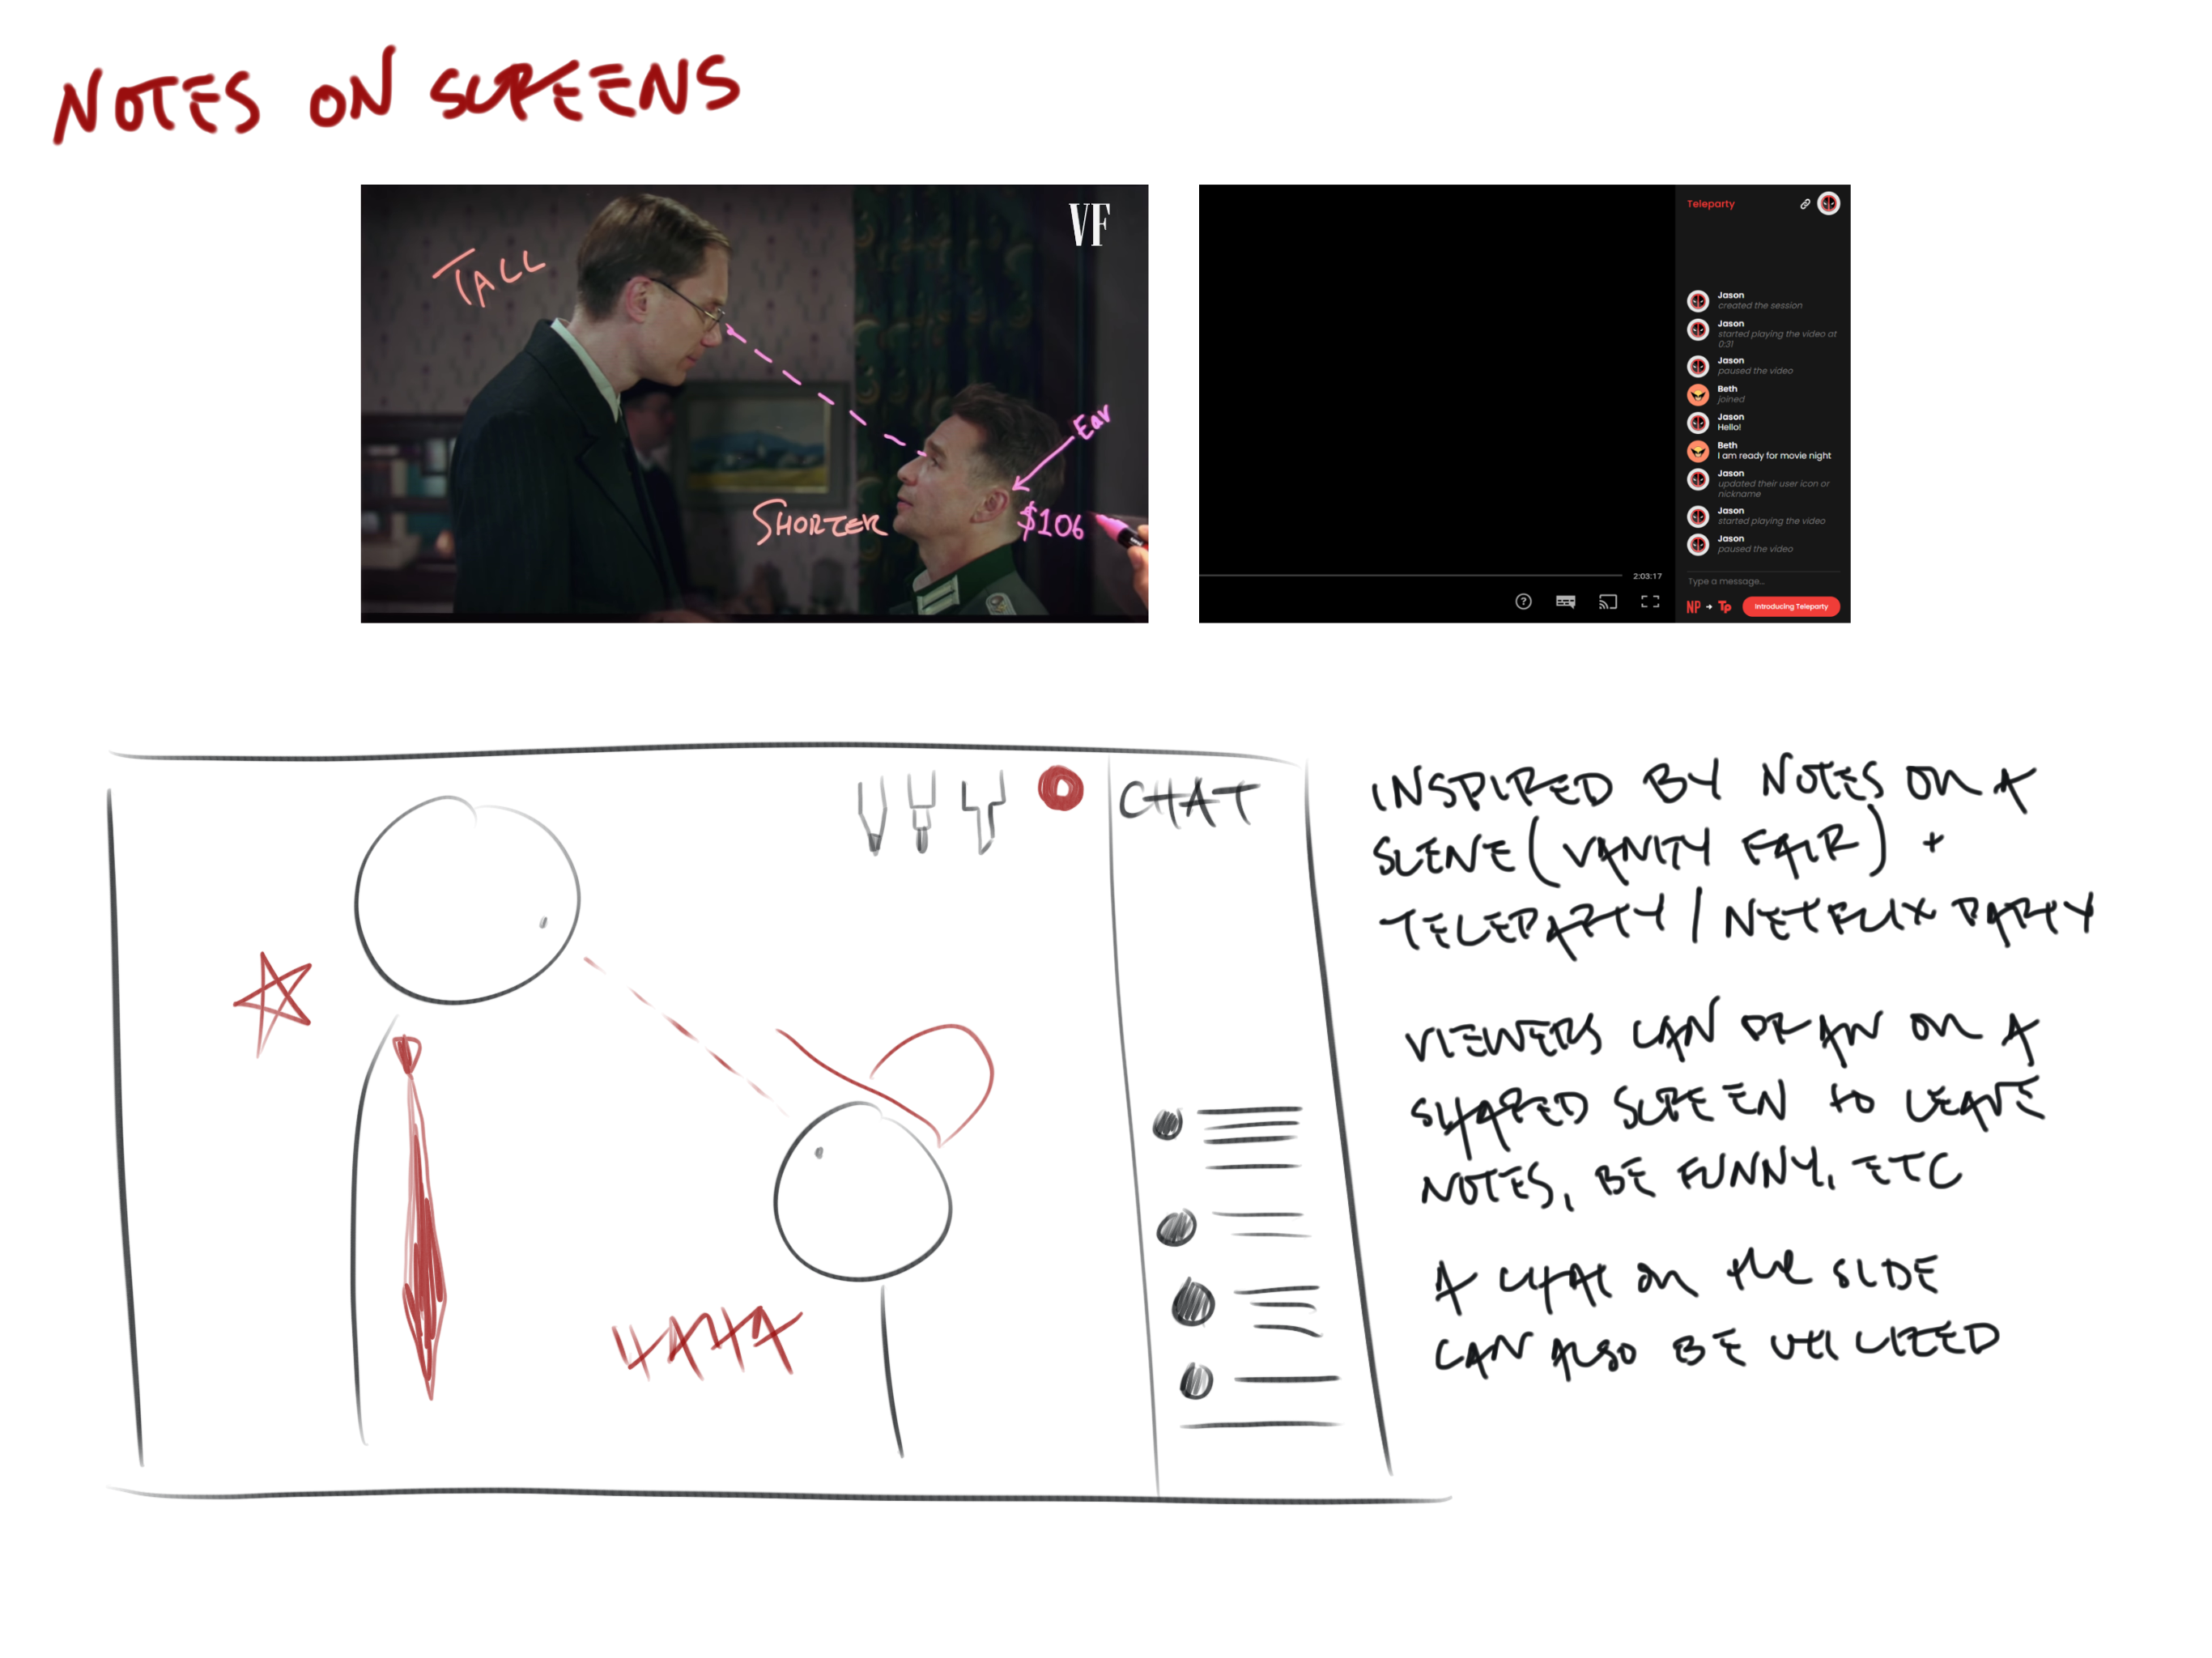 NOTES ON SCREENS
VF
TALL
Ear
SHORTER
$106
Teleparty
Jason
created the session
Jason
started playing the video at
0:31
Jason
paused the video
Beth
joined
Jason
Hello!
Beth
I am ready for movie night
Jason
updated their user icon or
nickname
Jason
started playing the video
Jason
paused the video
2:03:17
Type a message...
?
NP → TP
Introducing Teleparty
CHAT
HAHA
INSPIRED BY NOTES ON A
SCENE (VANITY FAIR) +
TELEPARTY / NETFLIX PARTY
VIEWERS CAN DRAW ON A
SHARED SCREEN TO LEAVE
NOTES, BE FUNNY, ETC
A CHAT ON THE SIDE
CAN ALSO BE UTILIZED